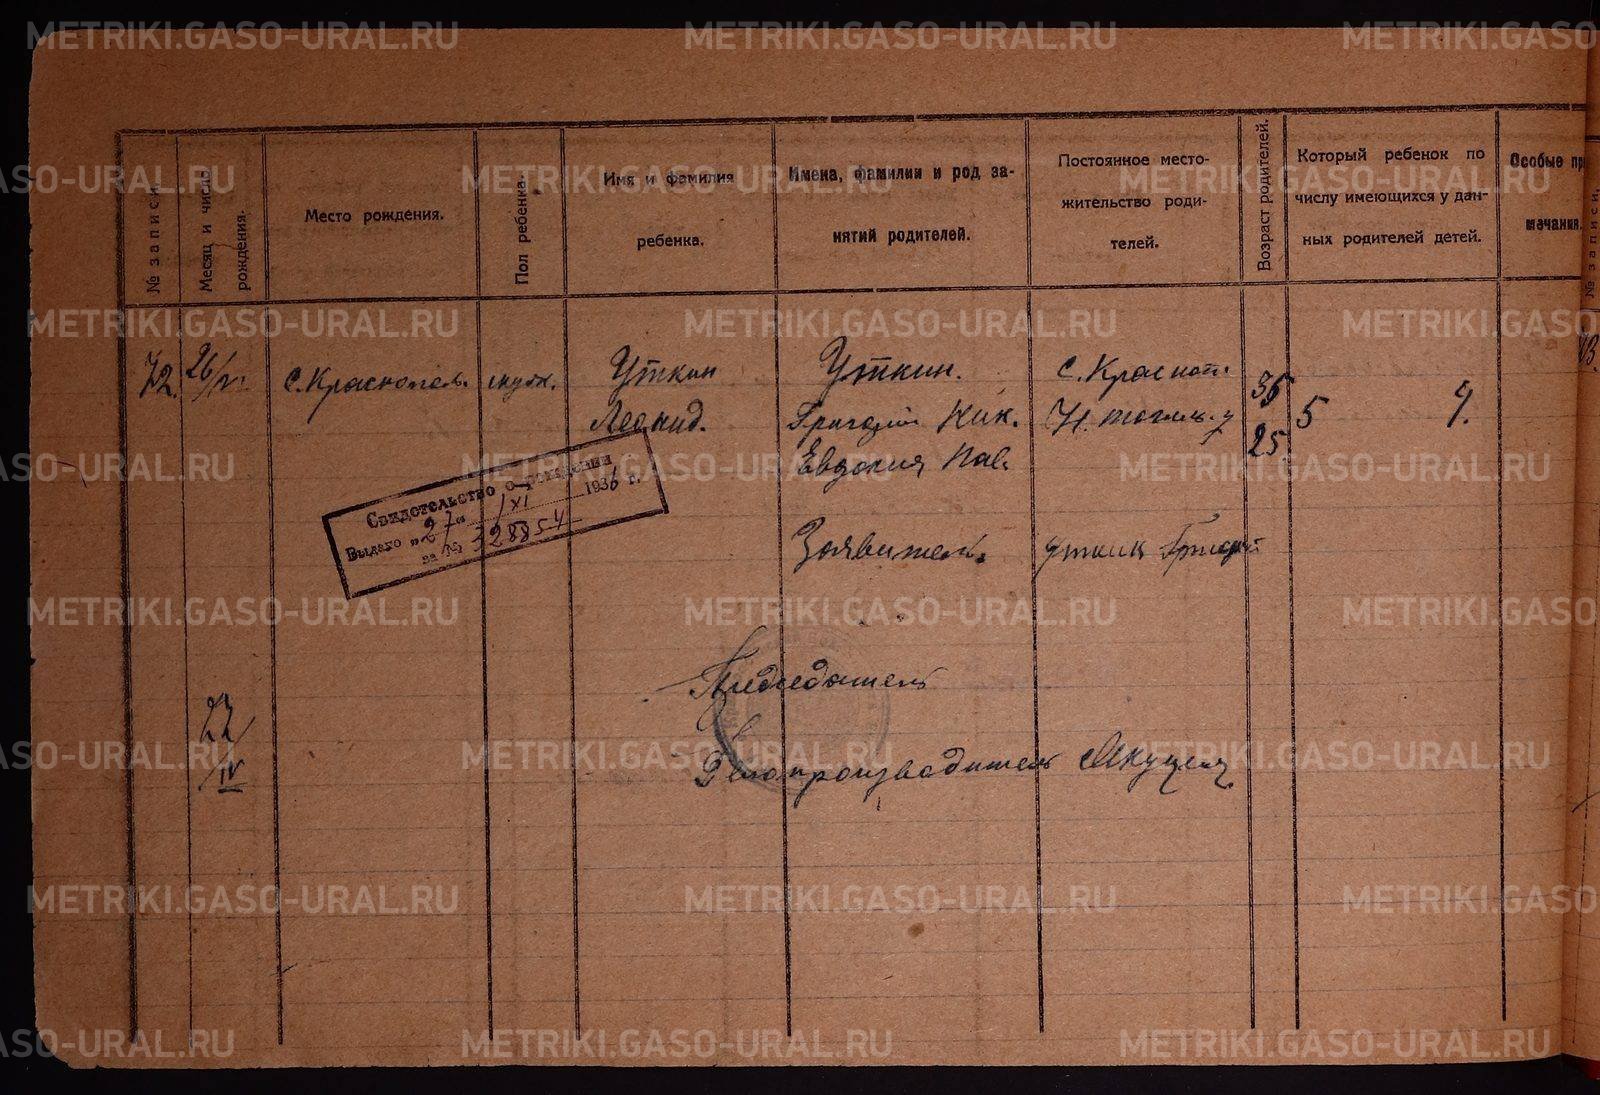 METRIKI.GASO-URAL.RU
№ записи.
Месяц и число рождения.
Место рождения.
Пол ребенка.
Имя и фамилия
ребенка.
Имена, фамилии и род за-
нятий родителей.
Постоянное место-
жительство роди-
телей.
Возраст родителей.
Который ребенок по
числу имеющихся у дан-
ных родителей детей.
Особые при
мечания.
№ записи.
72.
с. Краснопол.
мужск.
Уткин
Леонид.
Уткин.
Григорий Ник.
Евдокия Пав.
с. Красноп.
36
25
5
Свидетельство о рождении
Выдано „27“ /XI 1936 г.
за № 328854
Заявитель.
Уткин Григорий
Председатель
22/IV
Делопроизводитель